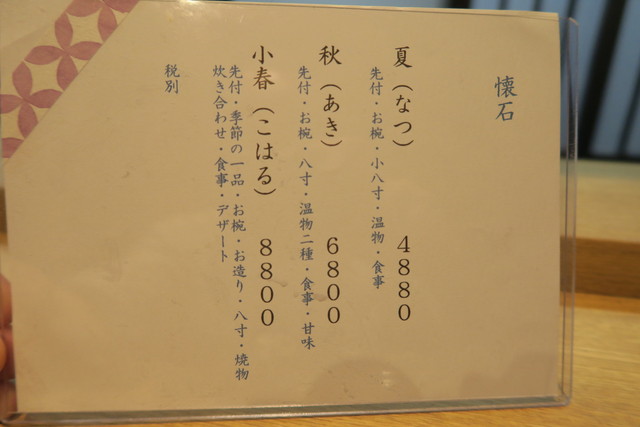 懐石
夏（なつ）　4880
先付・お椀・小八寸・温物・食事
秋（あき）　6800
先付・お椀・八寸・温物二種・食事・甘味
小春（こはる）　8800
先付・季節の一品・お椀・お造り・八寸・焼物
炊き合わせ・食事・デザート
税別